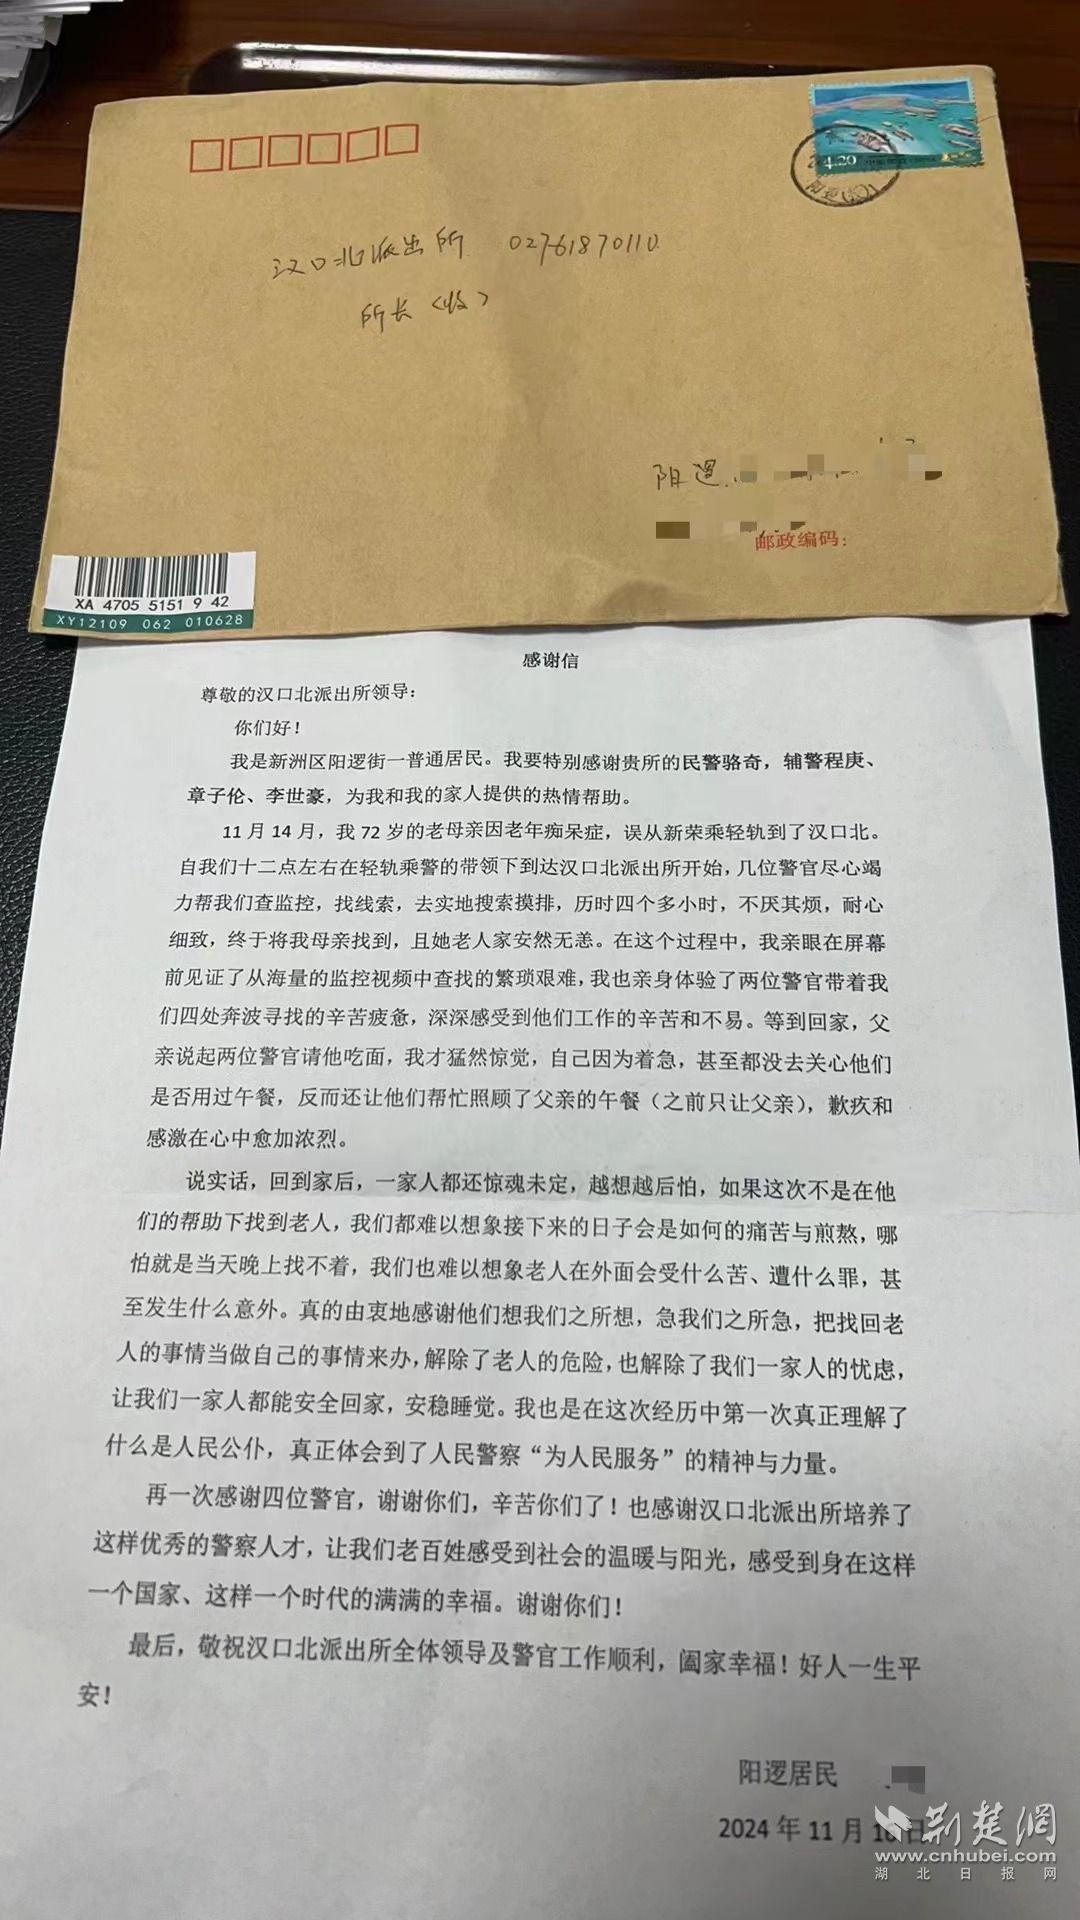 4.20
汉口北派出所 02761870110
所长（收）
阳逻
邮政编码：
XA 4705 5151 9 42
XY12109 062 010628
感谢信
尊敬的汉口北派出所领导：
你们好！
我是新洲区阳逻街一普通居民。我要特别感谢贵所的民警骆奇，辅警程庚、
章子伦、李世豪，为我和我的家人提供的热情帮助。
11 月 14 月，我 72 岁的老母亲因老年痴呆症，误从新荣乘轻轨到了汉口北。
自我们十二点左右在轻轨乘警的带领下到达汉口北派出所开始，几位警官尽心竭
力帮我们查监控，找线索，去实地搜索摸排，历时四个多小时，不厌其烦，耐心
细致，终于将我母亲找到，且她老人家安然无恙。在这个过程中，我亲眼在屏幕
前见证了从海量的监控视频中查找的繁琐艰难，我也亲身体验了两位警官带着我
们四处奔波寻找的辛苦疲惫，深深感受到他们工作的辛苦和不易。等到回家，父
亲说起两位警官请他吃面，我才猛然惊觉，自己因为着急，甚至都没去关心他们
是否用过午餐，反而还让他们帮忙照顾了父亲的午餐（之前只让父亲），歉疚和
感激在心中愈加浓烈。
说实话，回到家后，一家人都还惊魂未定，越想越后怕，如果这次不是在他
们的帮助下找到老人，我们都难以想象接下来的日子会是如何的痛苦与煎熬，哪
怕就是当天晚上找不着，我们也难以想象老人在外面会受什么苦、遭什么罪，甚
至发生什么意外。真的由衷地感谢他们想我们之所想，急我们之所急，把找回老
人的事情当做自己的事情来办，解除了老人的危险，也解除了我们一家人的忧虑，
让我们一家人都能安全回家，安稳睡觉。我也是在这次经历中第一次真正理解了
什么是人民公仆，真正体会到了人民警察“为人民服务”的精神与力量。
再一次感谢四位警官，谢谢你们，辛苦你们了！也感谢汉口北派出所培养了
这样优秀的警察人才，让我们老百姓感受到社会的温暖与阳光，感受到身在这样
一个国家、这样一个时代的满满的幸福。谢谢你们！
最后，敬祝汉口北派出所全体领导及警官工作顺利，阖家幸福！好人一生平
安！
阳逻居民
2024 年 11 月 18 日
荆楚网
www.cnhubei.com
湖北日报网